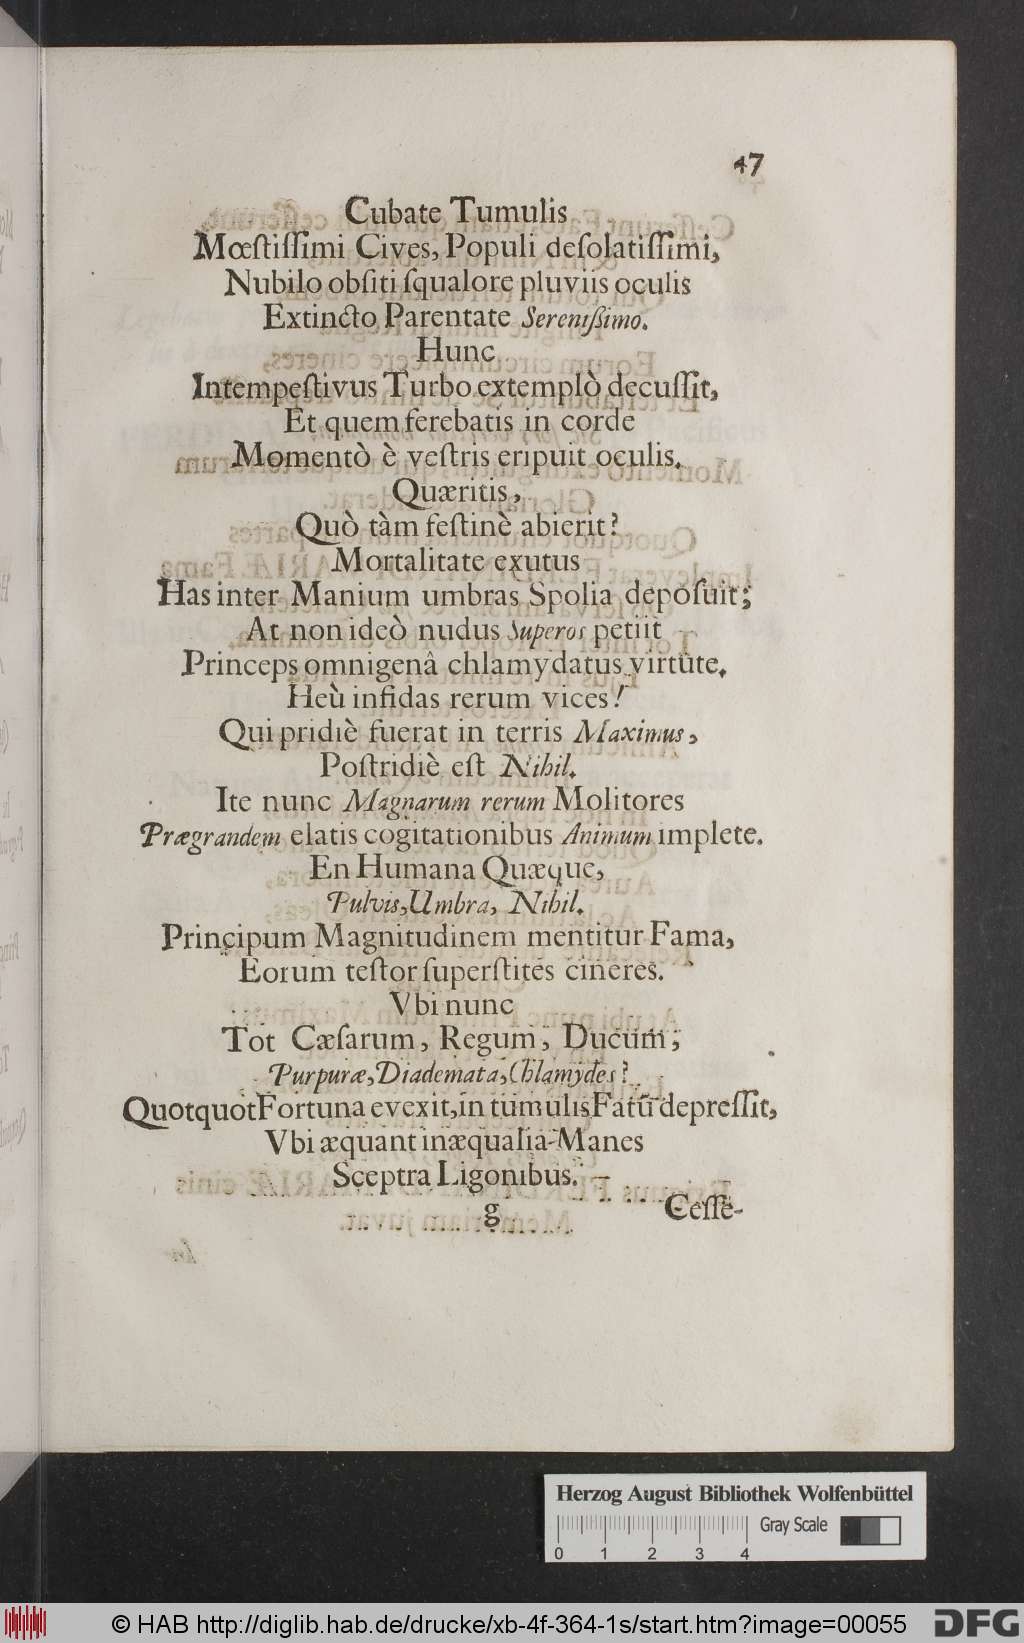 47
Cubate Tumulis
Mœſtiſſimi Cives, Populi deſolatiſſimi,
Nubilo obſiti ſqualore pluviis oculis
Extincto Parentate Sereniſſimo.
Hunc
Intempeſtivus Turbo extemplò decuſſit,
Et quem ferebatis in corde
Momentò è veſtris eripuit oculis.
Quæritis,
Quò tàm feſtinè abierit?
Mortalitate exutus
Has inter Manium umbras Spolia depoſuit;
At non ideò nudus Superos petiit
Princeps omnigenâ chlamydatus virtute.
Heù infidas rerum vices!
Qui pridiè fuerat in terris Maximus,
Poſtridiè eſt Nihil.
Ite nunc Magnarum rerum Molitores
Prægrandem elatis cogitationibus Animum implete.
En Humana Quæque,
Pulvis, Umbra, Nihil.
Principum Magnitudinem mentitur Fama,
Eorum teſtor ſuperſtites cineres.
Vbi nunc
Tot Cæſarum, Regum, Ducum;
Purpuræ, Diademata, Chlamydes?
Quotquot Fortuna evexit, in tumulis Fatũ depreſſit,
Vbi æquant inæqualia Manes
Sceptra Ligonibus.
g Ceſſe-
Herzog August Bibliothek Wolfenbüttel
Gray Scale
0 1 2 3 4
© HAB http://diglib.hab.de/drucke/xb-4f-364-1s/start.htm?image=00055
DFG